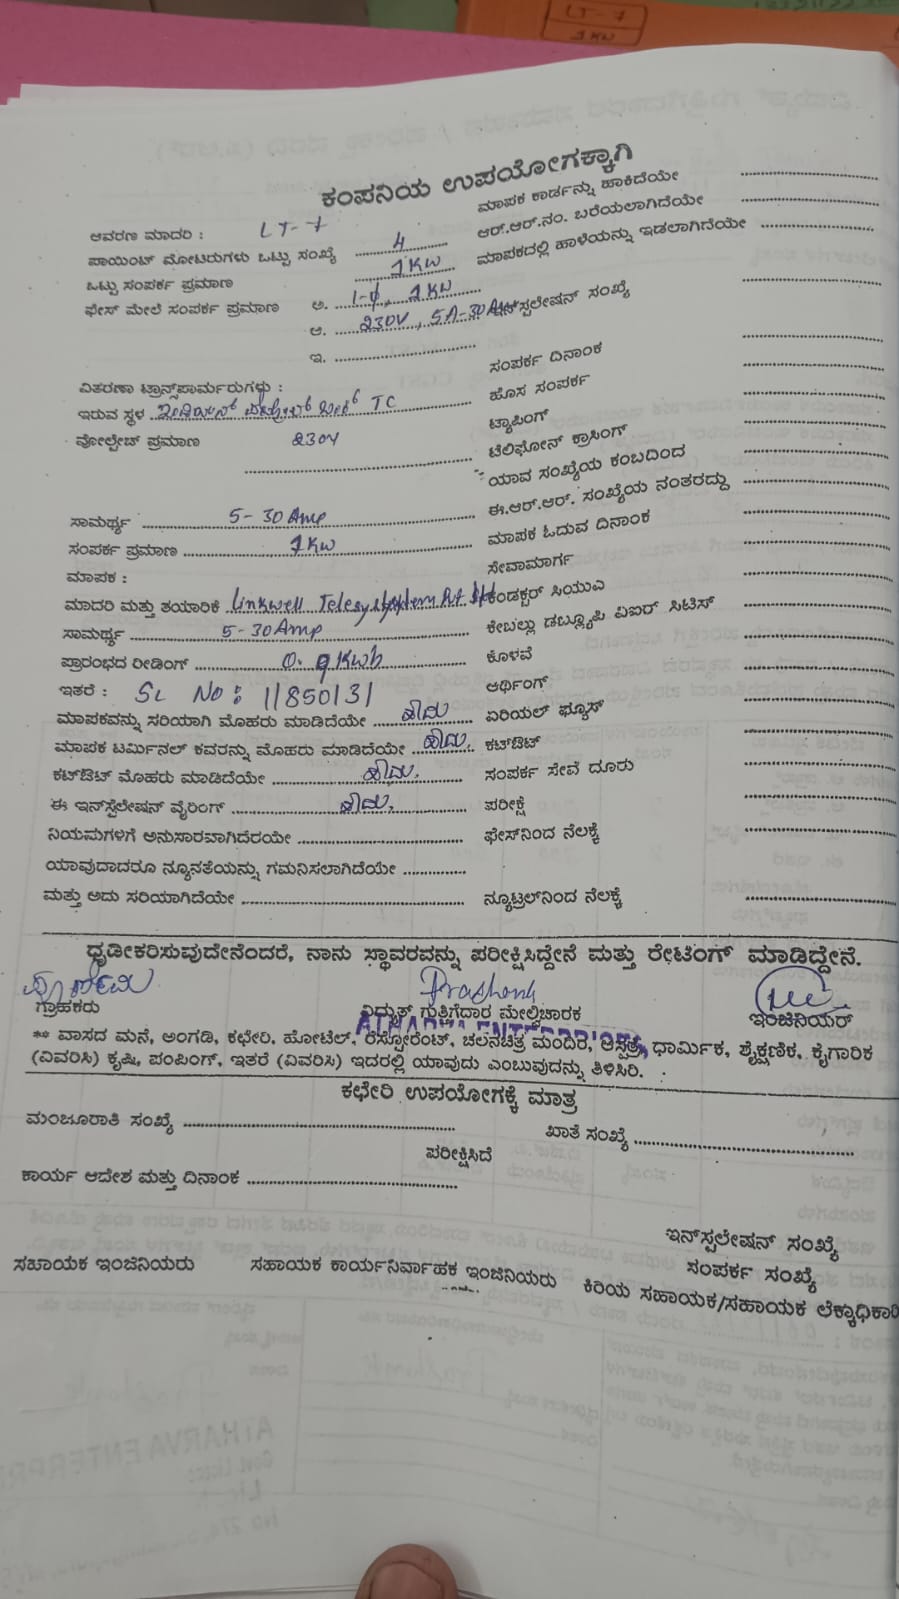 LT-7
1KW
ಕಂಪನಿಯ ಉಪಯೋಗಕ್ಕಾಗಿ
ಆವರಣ ಮಾದರಿ : LT-7
ಮಾಪಕ ಕಾರ್ಡನ್ನು ಹಾಕಿದೆಯೇ ....................
ಪಾಯಿಂಟ್ ಮೋಟರುಗಳು ಒಟ್ಟು ಸಂಖ್ಯೆ 4
ಆರ್.ಆರ್.ನಂ. ಬರೆಯಲಾಗಿದೆಯೇ ....................
ಒಟ್ಟು ಸಂಪರ್ಕ ಪ್ರಮಾಣ 1KW
ಮಾಪಕದಲ್ಲಿ ಹಾಳೆಯನ್ನು ಇಡಲಾಗಿದೆಯೇ ....................
ಫೇಸ್ ಮೇಲೆ ಸಂಪರ್ಕ ಪ್ರಮಾಣ ಅ. 1-φ, 1KW
ಆ. 230V, 5A-30Amp
ಇನ್‌ಸ್ಪಲೇಷನ್ ಸಂಖ್ಯೆ ....................
ಇ. ....................
ಸಂಪರ್ಕ ದಿನಾಂಕ ....................
ವಿತರಣಾ ಟ್ರಾನ್ಸ್‌ಪಾರ್ಮರುಗಳು :
ಹೊಸ ಸಂಪರ್ಕ ....................
ಇರುವ ಸ್ಥಳ TC
ಟ್ಯಾಪಿಂಗ್ ....................
ವೋಲ್ಟೇಜ್ ಪ್ರಮಾಣ 230V
ಟೆಲಿಫೋನ್ ಕ್ರಾಸಿಂಗ್ ....................
ಯಾವ ಸಂಖ್ಯೆಯ ಕಂಬದಿಂದ ....................
ಸಾಮರ್ಥ್ಯ 5-30Amp
ಈ.ಆರ್.ಆರ್. ಸಂಖ್ಯೆಯ ನಂತರದ್ದು ....................
ಸಂಪರ್ಕ ಪ್ರಮಾಣ 1KW
ಮಾಪಕ ಓದುವ ದಿನಾಂಕ ....................
ಮಾಪಕ :
ಸೇವಾಮಾರ್ಗ ....................
ಮಾದರಿ ಮತ್ತು ತಯಾರಿಕೆ Linkwell
ಕಂಡಕ್ಟರ್ ಸಿಯುವಿ ....................
ಸಾಮರ್ಥ್ಯ 5-30Amp
ಕೇಬಲ್ಲು ಡಬ್ಲ್ಯೂಪಿ ವಿಐಆರ್ ಸಿಟಿಸ್ ....................
ಪ್ರಾರಂಭದ ರೀಡಿಂಗ್ 0.9Kwh
ಕೊಳವೆ ....................
ಇತರೆ : SL No: 11850131
ಆರ್ಥಿಂಗ್ ....................
ಮಾಪಕವನ್ನು ಸರಿಯಾಗಿ ಮೊಹರು ಮಾಡಿದೆಯೇ ಹೌದು
ಏರಿಯಲ್ ಫ್ಯೂಸ್ ....................
ಮಾಪಕ ಟರ್ಮಿನಲ್ ಕವರನ್ನು ಮೊಹರು ಮಾಡಿದೆಯೇ ಹೌದು.
ಕಟ್‌ಔಟ್ ....................
ಕಟ್‌ಔಟ್ ಮೊಹರು ಮಾಡಿದೆಯೇ ಹೌದು.
ಸಂಪರ್ಕ ಸೇವೆ ದೂರು ....................
ಈ ಇನ್‌ಸ್ಪಲೇಷನ್ ವೈರಿಂಗ್ ಹೌದು.
ಪರೀಕ್ಷೆ ....................
ನಿಯಮಗಳಿಗೆ ಅನುಸಾರವಾಗಿದೆರಯೇ ....................
ಫೇಸ್‌ನಿಂದ ನೆಲಕ್ಕೆ ....................
ಯಾವುದಾದರೂ ನ್ಯೂನತೆಯನ್ನು ಗಮನಿಸಲಾಗಿದೆಯೇ ..............
ಮತ್ತು ಅದು ಸರಿಯಾಗಿದೆಯೇ ....................
ನ್ಯೂಟ್ರಲ್‌ನಿಂದ ನೆಲಕ್ಕೆ ....................
ಧೃಡೀಕರಿಸುವುದೇನೆಂದರೆ, ನಾನು ಸ್ಥಾವರವನ್ನು ಪರೀಕ್ಷಿಸಿದ್ದೇನೆ ಮತ್ತು ರೇಟಿಂಗ್ ಮಾಡಿದ್ದೇನೆ.
Prashant
ಗ್ರಾಹಕರು
ವಿದ್ಯುತ್ ಗುತ್ತಿಗೆದಾರ ಮೇಲ್ವಿಚಾರಕ
ಇಂಜಿನಿಯರ್
ATHARVA ENTERPRISES
** ವಾಸದ ಮನೆ, ಅಂಗಡಿ, ಕಛೇರಿ, ಹೋಟೆಲ್, ರೆಸ್ಟೋರೆಂಟ್, ಚಲನಚಿತ್ರ ಮಂದಿರ, ಆಸ್ಪತ್ರೆ, ಧಾರ್ಮಿಕ, ಶೈಕ್ಷಣಿಕ, ಕೈಗಾರಿಕ
(ವಿವರಿಸಿ) ಕೃಷಿ, ಪಂಪಿಂಗ್, ಇತರೆ (ವಿವರಿಸಿ) ಇದರಲ್ಲಿ ಯಾವುದು ಎಂಬುವುದನ್ನು ತಿಳಿಸಿರಿ.
ಕಛೇರಿ ಉಪಯೋಗಕ್ಕೆ ಮಾತ್ರ
ಮಂಜೂರಾತಿ ಸಂಖ್ಯೆ ....................
ಖಾತೆ ಸಂಖ್ಯೆ ....................
ಪರೀಕ್ಷಿಸಿದೆ
ಕಾರ್ಯ ಆದೇಶ ಮತ್ತು ದಿನಾಂಕ ....................
ಇನ್‌ಸ್ಪಲೇಷನ್ ಸಂಖ್ಯೆ
ಸಂಪರ್ಕ ಸಂಖ್ಯೆ
ಸಹಾಯಕ ಇಂಜಿನಿಯರು
ಸಹಾಯಕ ಕಾರ್ಯನಿರ್ವಾಹಕ ಇಂಜಿನಿಯರು
ಕಿರಿಯ ಸಹಾಯಕ/ಸಹಾಯಕ ಲೆಕ್ಕಾಧಿಕಾರಿ